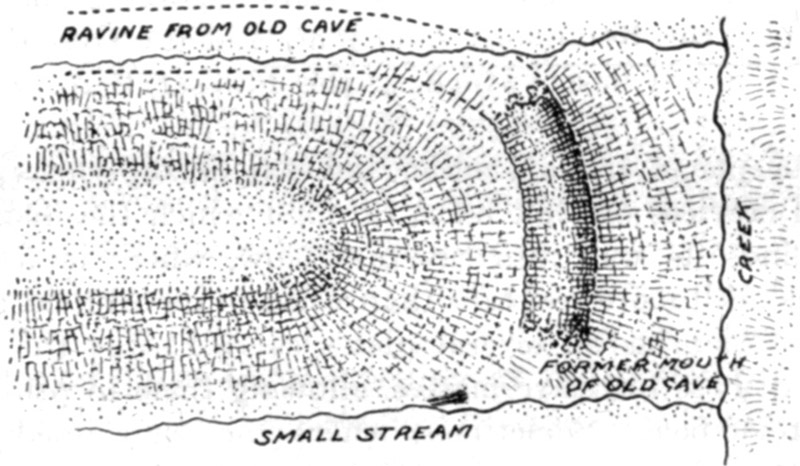 RAVINE FROM OLD CAVE
CREEK
FORMER MOUTH
OF OLD CAVE
SMALL STREAM